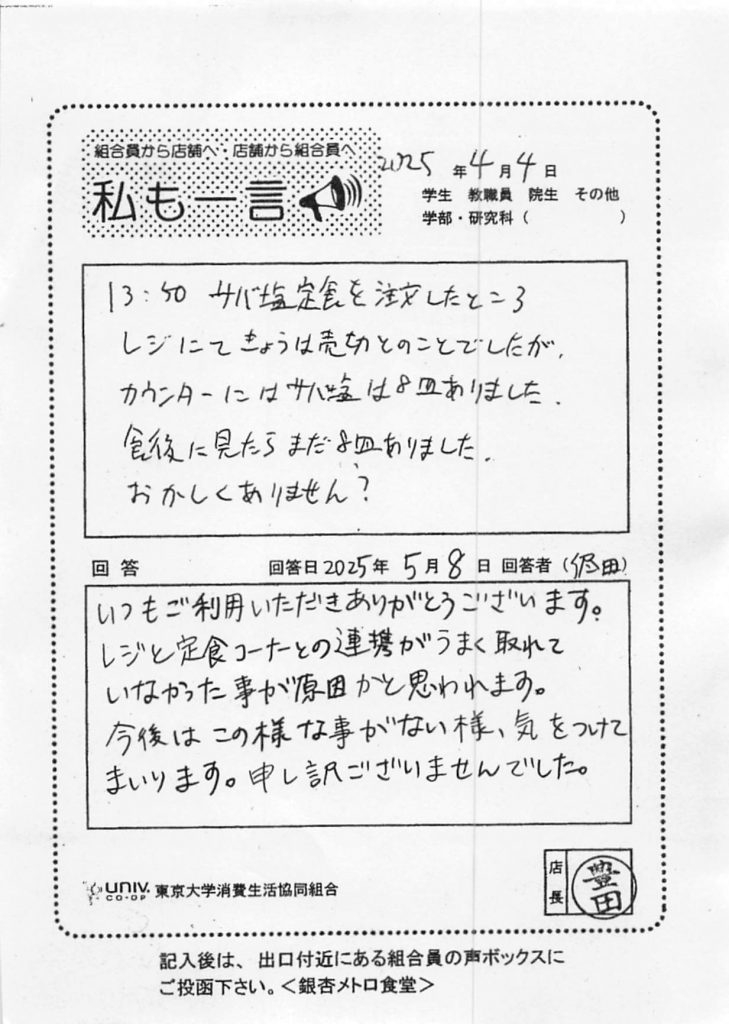 組合員から店舗へ・店舗から組合員へ
私も一言
2025年4月4日
学生 教職員 院生 その他
学部・研究科（ ）
13:50 サバ塩定食を注文したところ
レジにてきょうは売切とのことでしたが、
カウンターにはサバ塩は8皿ありました。
食後に見たらまだ8皿ありました。
おかしくありませんか?
回答 回答日2025年5月8日 回答者（ 田）
いつもご利用いただきありがとうございます。
レジと定食コーナーとの連携がうまく取れて
いなかった事が原因かと思われます。
今後はこの様な事がない様、気をつけて
まいります。申し訳ございませんでした。
UNIV. CO-OP 東京大学消費生活協同組合
店長 豊田
記入後は、出口付近にある組合員の声ボックスに
ご投函下さい。＜銀杏メトロ食堂＞